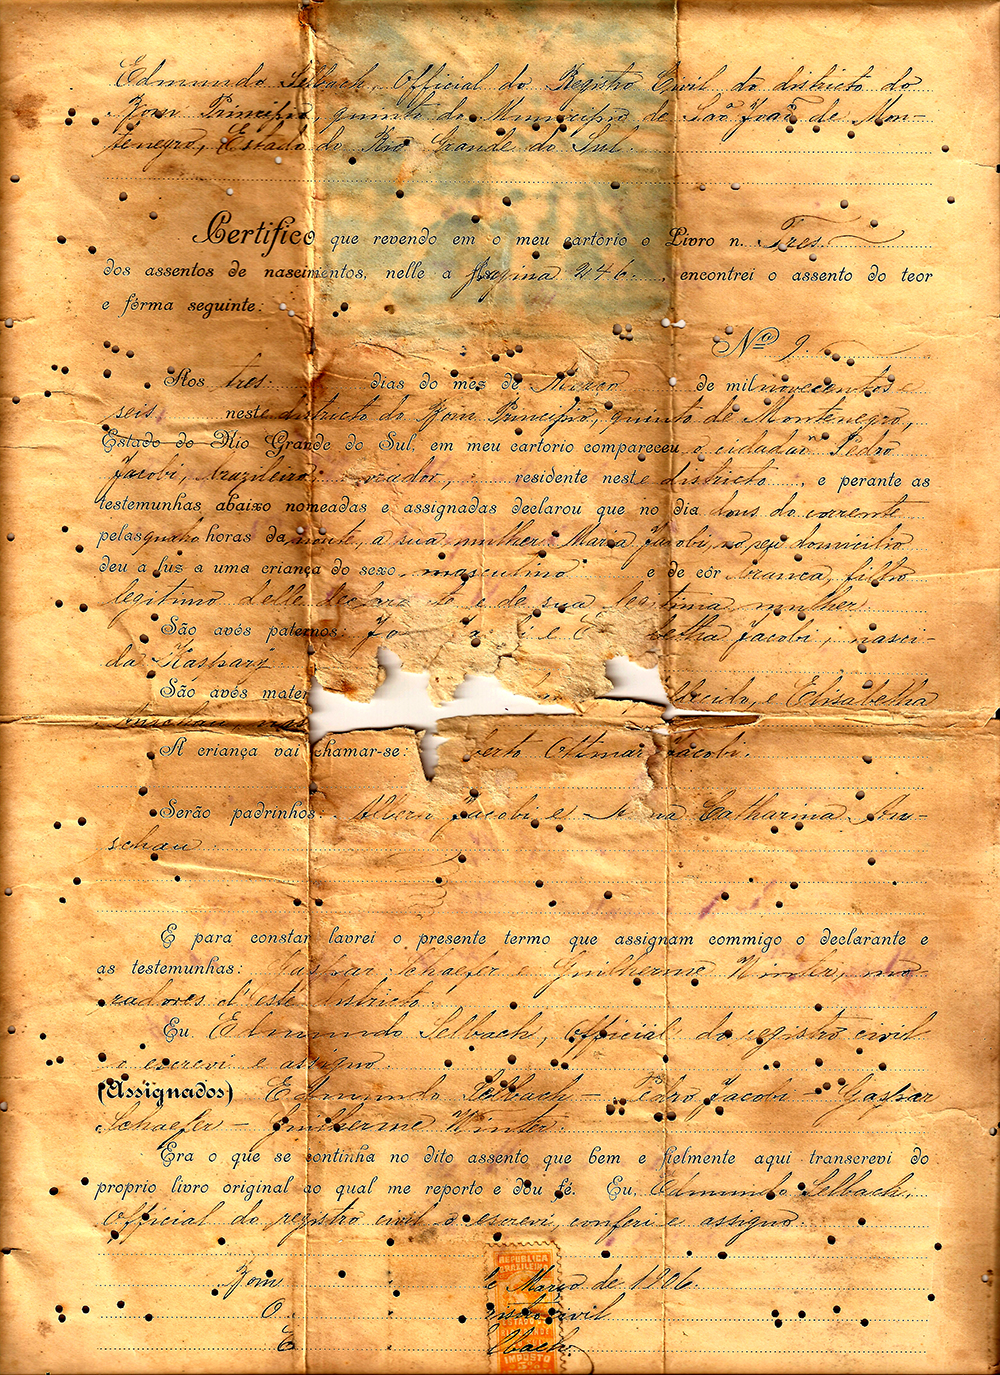 Edmundo Selbach, Official do Registro Civil do districto do
Bom Principio, quinto do Municipio de São João de Mon-
tenegro, Estado do Rio Grande do Sul.
Certifico que revendo em o meu cartorio o Livro n. Tres
dos assentos de nascimentos, nelle a pagina 246, encontrei o assento do teor
e fórma seguinte:
Nº 9
Aos tres dias do mez de Março de mil novecentos e
seis neste districto do Bom Principio, quinto de Montenegro,
Estado do Rio Grande do Sul, em meu cartorio compareceu o cidadão Pedro
Jacobi, brazileiro, criador, residente neste districto, e perante as
testemunhas abaixo nomeadas e assignadas declarou que no dia dous do corrente
pelas quatro horas da noute, a sua mulher Maria Jacobi, no seu domicilio
deu a luz a uma criança do sexo masculino e de côr branca, filho
legitimo delle declarante e de sua legitima mulher.
São avós paternos: Jo i e E betha Jacobi, nasci-
da Kaspary
São avós mater lecido, e Elisabetha
Anschau nas
A criança vai chamar-se: berto Ottmar Jacobi.
Serão padrinhos: Jacobi e Anna Catharina An-
schau
E para constar lavrei o presente termo que assignam commigo o declarante e
as testemunhas: Gaspar Schaefer e Guilherme Winter, mo-
radores d'este districto.
Eu Edmundo Selbach, official do registro civil
o escrevi e assigno.
(Assignados) Edmundo Selbach – Pedro Jacobi – Gaspar
Schaefer – Guilherme Winter.
Era o que se continha no dito assento que bem e fielmente aqui transcrevi do
proprio livro original ao qual me reporto e dou fé. Eu, Edmundo Selbach,
Official do registro civil o escrevi, conferi e assigno.
Bom e Março de 1906.
O istro civil
E lbach.
REPUBLICA
BRAZILEIRA
IMPOSTO